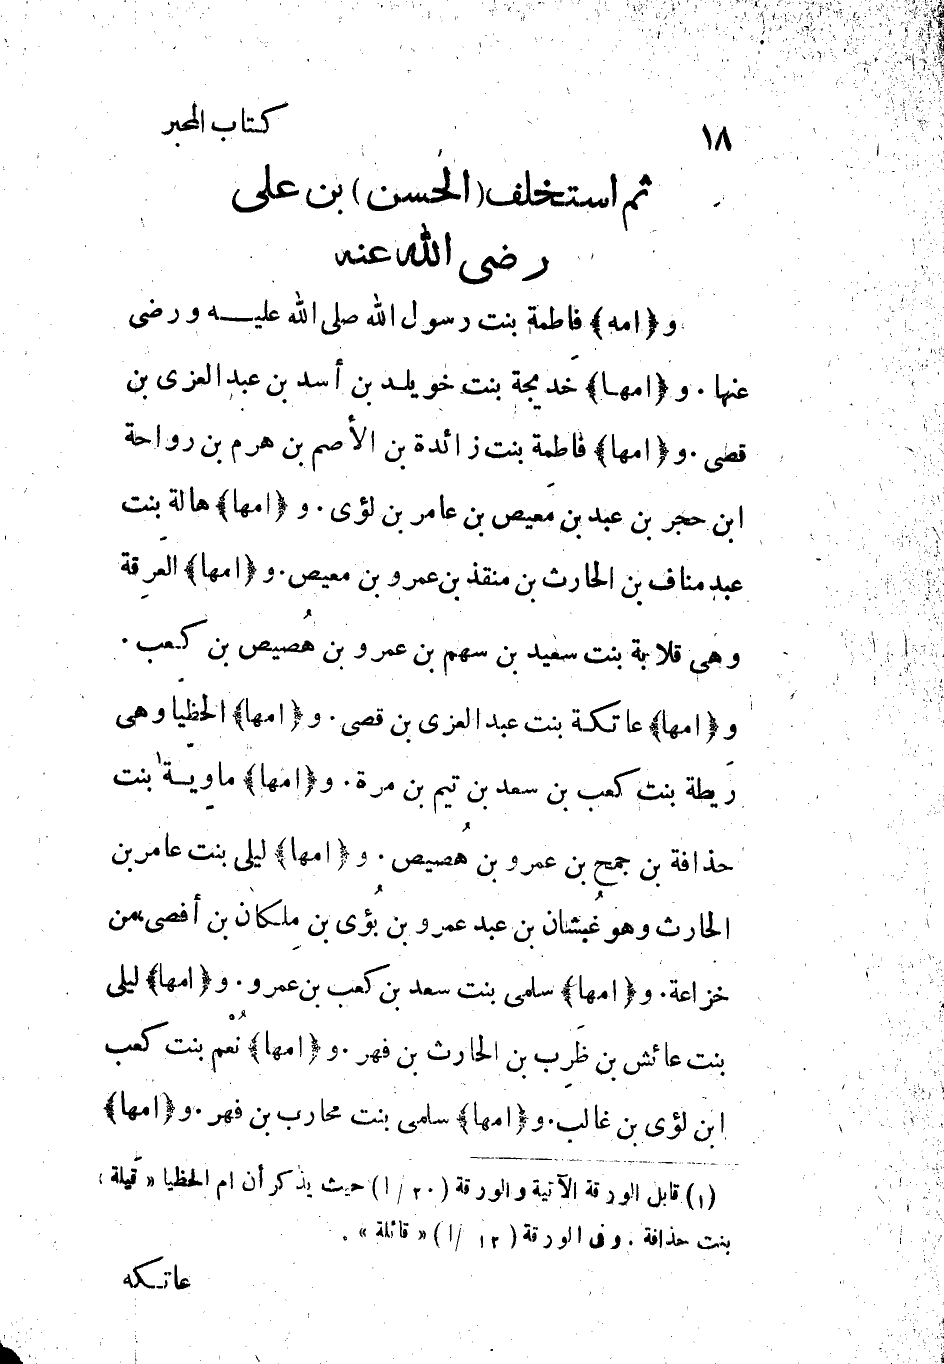 ١٨
كتاب المحبر
ثم استخلف (الحسن) بن على
رضى الله عنه
و ﴿امه﴾ فاطمة بنت رسول الله صلى الله عليه و رضى
عنها . و ﴿امها﴾ خديجة بنت خويلد بن أسد بن عبد العزى بن
قصى . و ﴿امها﴾ فاطِمة بنت زائدة بن الأصم بن هرم بن رواحة
ابن حجر بن عبد بن مَعيص بن عامر بن لؤى . و ﴿امها﴾ هالة بنت
عبد مناف بن الحارث بن منقذ بن عمرو بن معيص . و ﴿امها﴾ العَرِقة
وهى قلابة بنت سعيد بن سهم بن عمرو بن هُصيص بن كعب .
و ﴿امها﴾ عاتكة بنت عبد العزى بن قصى . و ﴿امها﴾ الحظيا وهى
رَيطة بنت كعب بن سعد بن تيم بن مرة . و ﴿امها﴾ ماوِيّة١ بنت
حذافة بن جمح بن عمرو بن هُصيص . و ﴿امها﴾ ليلى بنت عامر بن
الحارث وهو غُبشان بن عبد عمرو بن بُؤى بن مِلكان بن أفصى من
خزاعة . و ﴿امها﴾ سلمى بنت سعد بن كعب بن عمرو . و ﴿امها﴾ ليلى
بنت عائش بن ظَرِب بن الحارث بن فهر . و ﴿امها﴾ نُعْم بنت كعب
ابن لؤى بن غالب . و ﴿امها﴾ سلمى بنت محارب بن فهر . و ﴿امها﴾
(١) قابل الورقة الآتية والورقة (٢٠ / ا) حيث يذكر أن ام الحظيا « قَيلة »
بنت حذافة . وفى الورقة (١٢ / ا) « قائلة » .
عاتكه